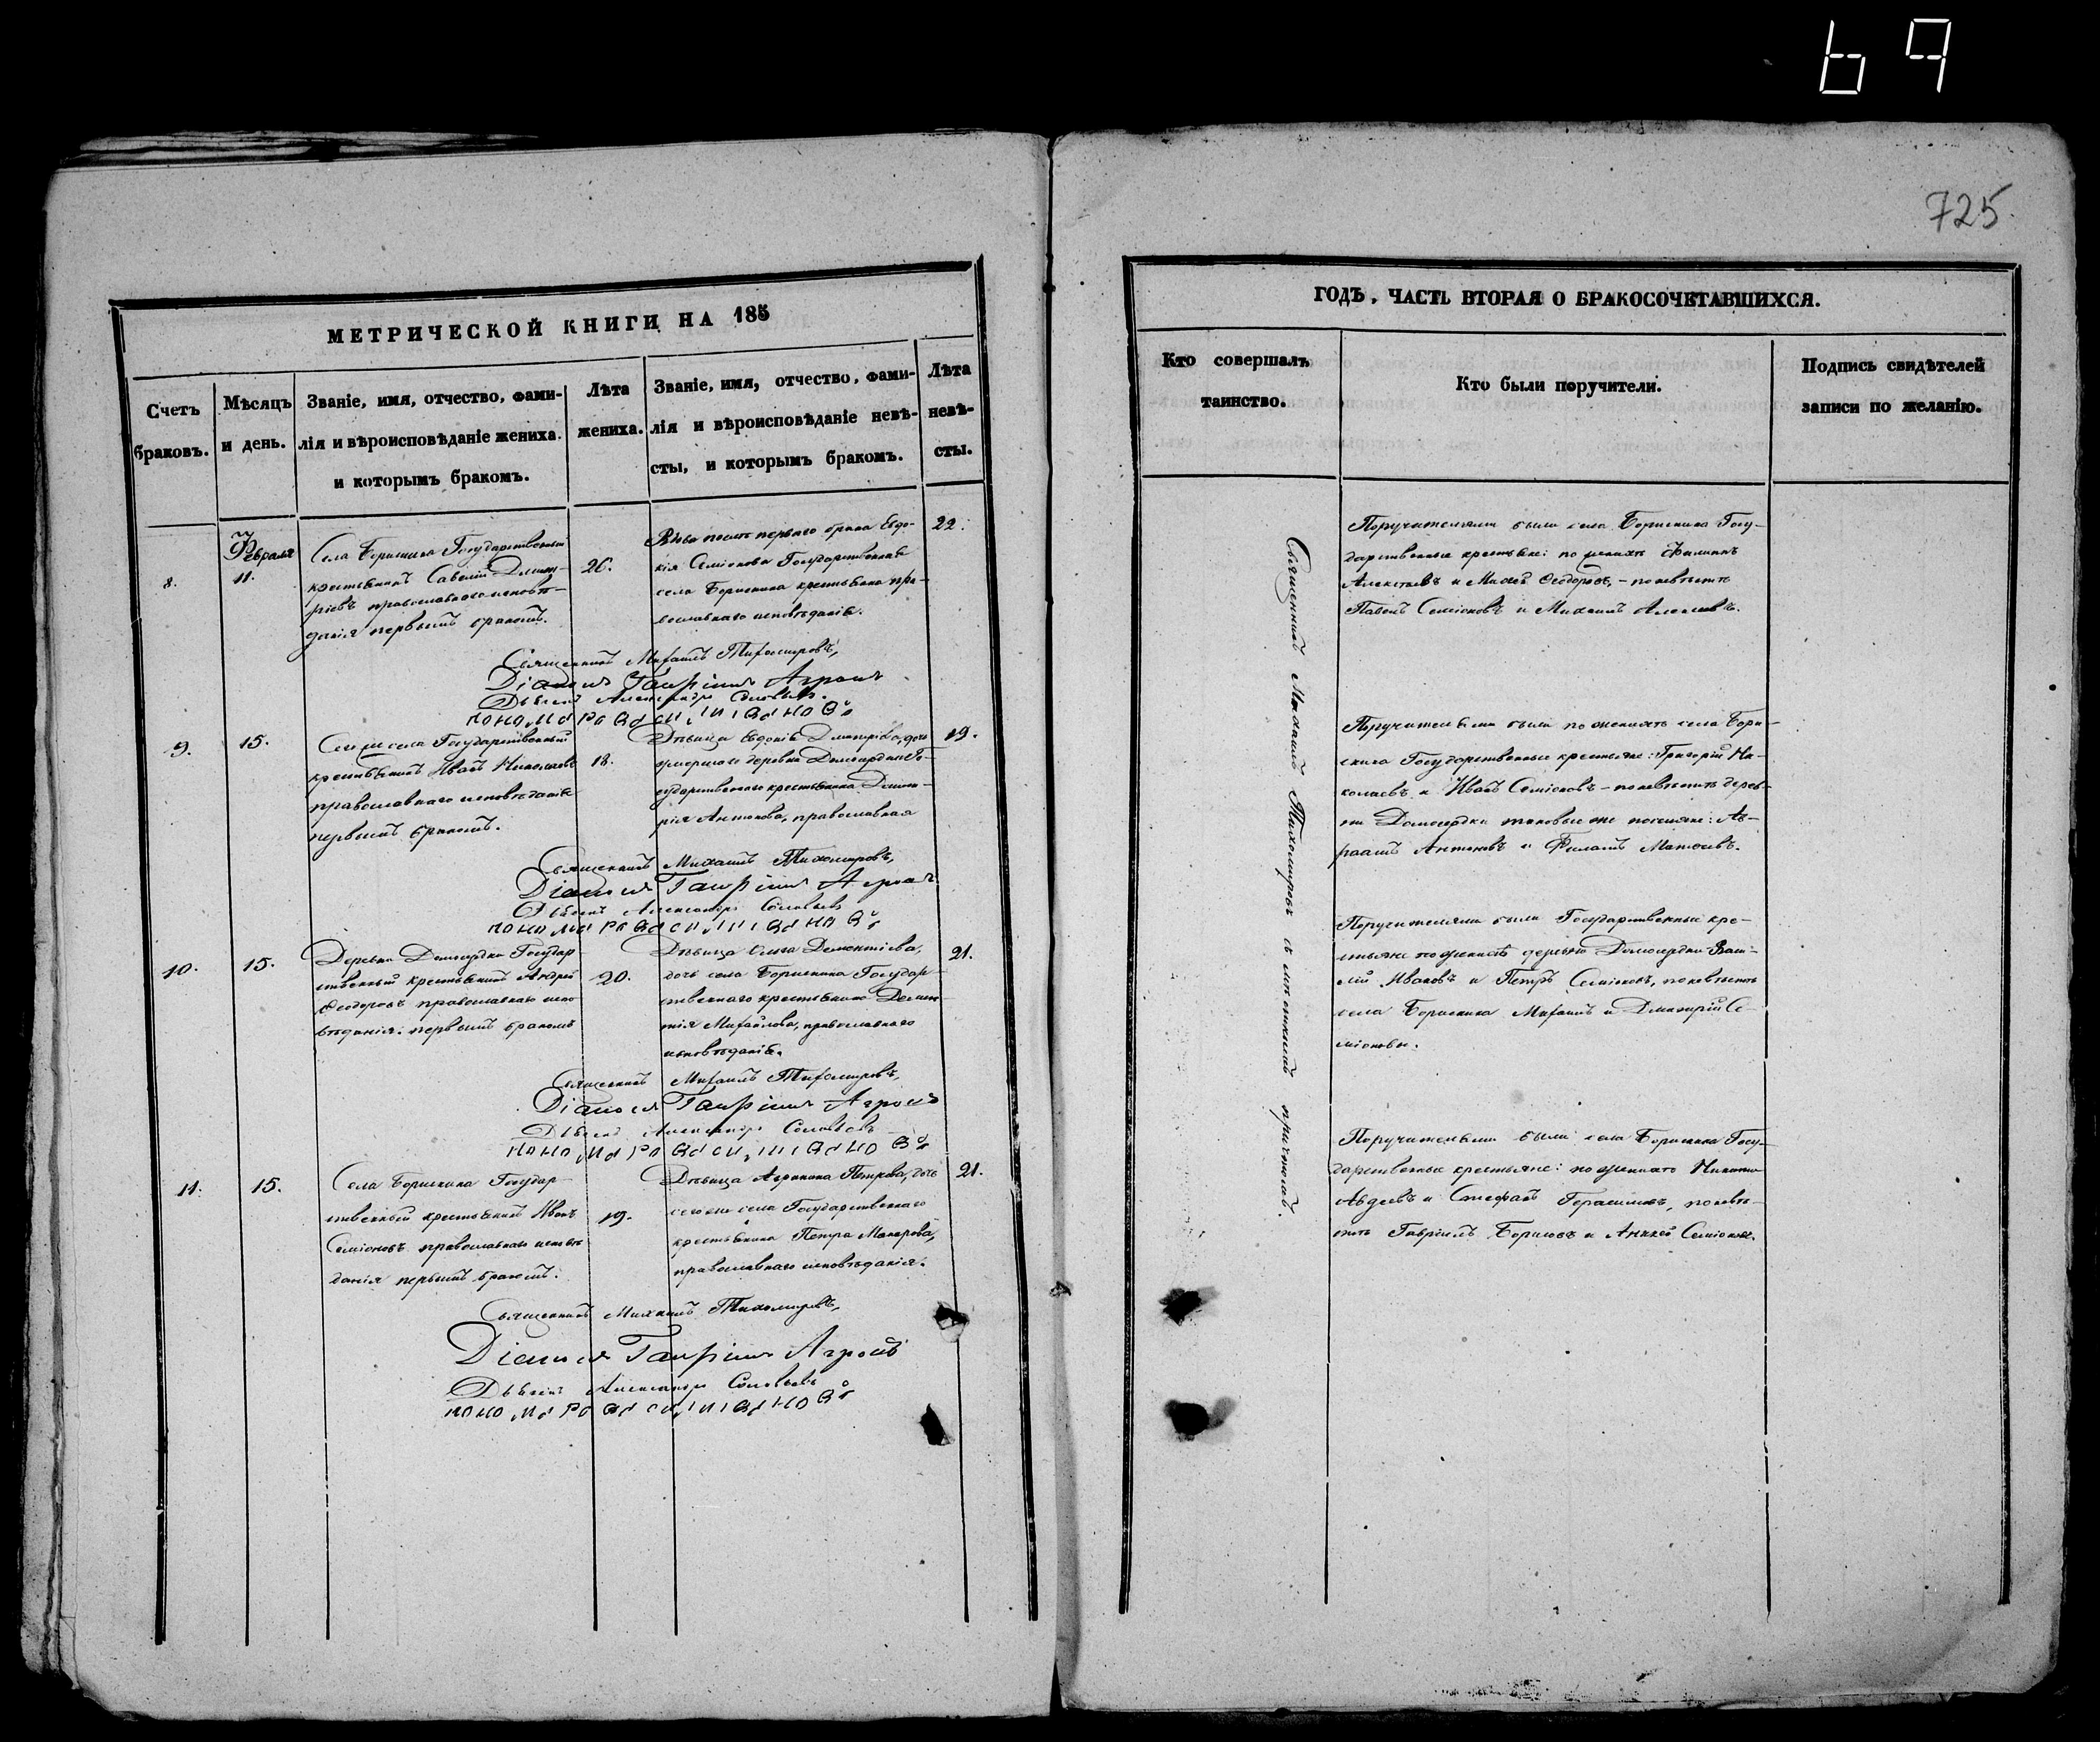 69
725.
МЕТРИЧЕСКОЙ КНИГИ НА 185
Счетъ браковъ.
Мѣсяцъ и день.
Званіе, имя, отчество, фами-
лія и вѣроисповѣданіе жениха.
и которымъ бракомъ.
Лѣта жениха.
Званіе, имя, отчество, фами-
лія и вѣроисповѣданіе невѣ-
сты, и которымъ бракомъ.
Лѣта невѣ-
сты.
8.
Февраля
11.
Села Борискина Государственный
крестьянинъ Савелій Димит-
ріевъ православнаго исповѣ-
данія первымъ бракомъ.
26.
Вдова послѣ перваго брака Евдо-
кія Семіонова Государственная
села Борискина крестьянка пра-
вославнаго исповѣданія.
22.
Священникъ Михаилъ Тихомировъ,
Діаконъ Гавріилъ Агровъ
Дьячекъ Александръ Соловьевъ.
9.
15.
села Государственный
крестьянинъ Иванъ Николаевъ
православнаго исповѣданія
первымъ бракомъ.
18.
Дѣвица Евдокія Димитріева, дочь
умершаго деревни Домосердки Го-
сударственнаго крестьянина Димит-
рія Антонова, православная
19.
Священникъ Михаилъ Тихомировъ,
Діаконъ Гавріилъ Агровъ
Дьячекъ Александръ Соловьевъ
10.
15.
Деревни Домосердки Государ-
ственный крестьянинъ Андрей
Ѳеодоровъ православнаго испо
вѣданія. первымъ бракомъ
20.
Дѣвица Дементіева,
дочь села Борискина Государ-
ственнаго крестьянина Демен-
тія Михайлова, православнаго
исповѣданія.
21.
Священникъ Михаилъ Тихомировъ,
Діаконъ Гавріилъ Агровъ
Дьячекъ Александръ Соловьевъ
11.
15.
Села Борискина Государ-
ственный крестьянинъ Иванъ
Семіоновъ православнаго исповѣ
данія первымъ бракомъ.
19.
Дѣвица Агрипина Петрова, дочь
тогоже села Государственнаго
крестьянина Петра Макарова,
православнаго исповѣданія.
21.
Священникъ Михаилъ Тихомировъ,
Діаконъ Гавріилъ Агровъ
Дьячекъ Александръ Соловьевъ
ГОДЪ, ЧАСТЬ ВТОРАЯ О БРАКОСОЧЕТАВШИХСЯ.
Кто совершалъ
таинство.
Кто были поручители.
Подпись свидѣтелей
записи по желанію.
Священникъ Михаилъ Тихомировъ съ причтомъ.
Поручителями были села Борискина Госу-
дарственные крестьяне: по женихѣ Филиппъ
Алексѣевъ и Ѳеодоровъ, - по невѣстѣ
Павелъ Семіоновъ и Михаилъ Алексѣевъ.
Поручителями были по женихѣ села Бори-
скина Государственные крестьяне: Григорій Ни-
колаевъ и Иванъ Семіоновъ - по невѣстѣ дерев-
ни Домосердки таковые же поселяне: Ав-
раамъ Антоновъ и Матвѣевъ.
Поручителями были Государственные кре-
стьяне по женихѣ деревни Домосердки Васи-
лій Ивановъ и Петръ Семіоновъ, по невѣстѣ
села Борискина Михаилъ и Димитрій Се-
міоновы.
Поручителями были села Борискина Госу-
дарственные крестьяне: по женихѣ Никита
Авдеевъ и Стефанъ Герасимовъ, по невѣ-
стѣ Гавріилъ Борисовъ и Семіоновъ.